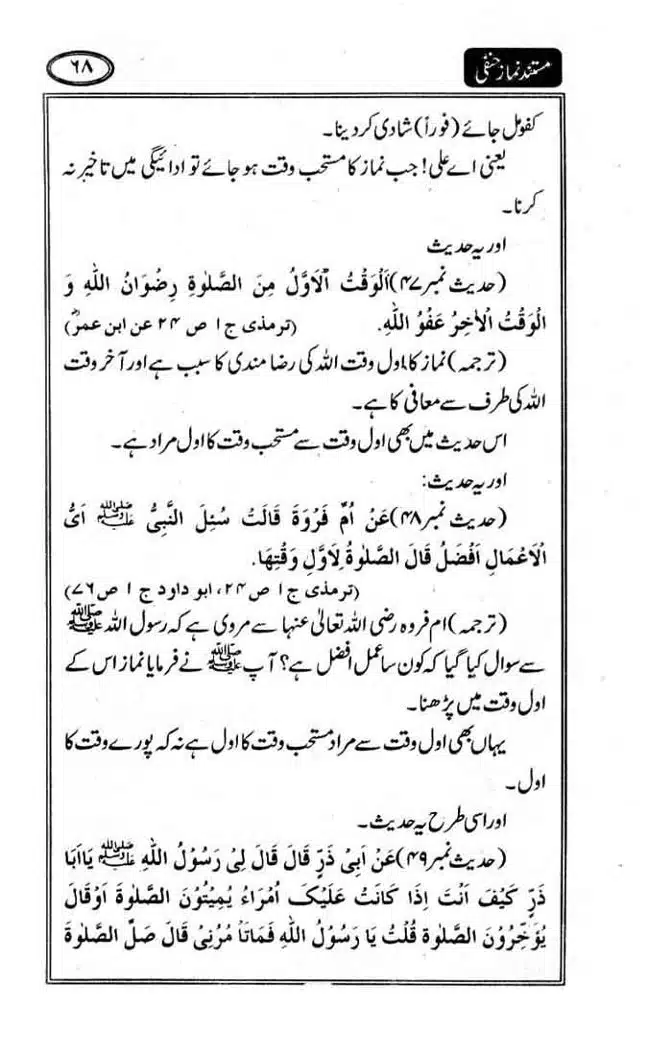 مستند نماز حنفی
۶۸
کفو مل جائے (فوراً) شادی کر دینا۔
یعنی اے علی! جب نماز کا مستحب وقت ہو جائے تو ادائیگی میں تاخیر نہ
کرنا۔
اور یہ حدیث
(حدیث نمبر ۴۷) اَلْوَقْتُ الْاَوَّلُ مِنَ الصَّلٰوةِ رِضْوَانُ اللهِ وَ
الْوَقْتُ الْاٰخِرُ عَفْوُ اللهِ. (ترمذی ج ۱ ص ۲۴ عن ابن عمرؓ)
(ترجمہ) نماز کا اول وقت اللہ کی رضا مندی کا سبب ہے اور آخر وقت
اللہ کی طرف سے معافی کا ہے۔
اس حدیث میں بھی اول وقت سے مستحب وقت کا اول مراد ہے۔
اور یہ حدیث:
(حدیث نمبر ۴۸) عَنْ اُمِّ فَرْوَةَ قَالَتْ سُئِلَ النَّبِیُّ ﷺ اَیُّ
الْاَعْمَالِ اَفْضَلُ قَالَ الصَّلٰوةُ لِاَوَّلِ وَقْتِهَا.
(ترمذی ج ۱ ص ۲۴، ابو داود ج ۱ ص ۷۶)
(ترجمہ) ام فروہ رضی اللہ تعالیٰ عنہا سے مروی ہے کہ رسول اللہ ﷺ
سے سوال کیا گیا کہ کون سا عمل افضل ہے؟ آپ ﷺ نے فرمایا نماز اس کے
اول وقت میں پڑھنا۔
یہاں بھی اول وقت سے مراد مستحب وقت کا اول ہے نہ کہ پورے وقت کا
اول۔
اور اسی طرح یہ حدیث۔
(حدیث نمبر ۴۹) عَنْ اَبِیْ ذَرٍّ قَالَ قَالَ لِیْ رَسُوْلُ اللهِ ﷺ یَااَبَا
ذَرٍّ کَیْفَ اَنْتَ اِذَا کَانَتْ عَلَیْکَ اُمَرَاءُ یُمِیْتُوْنَ الصَّلٰوةَ اَوْقَالَ
یُؤَخِّرُوْنَ الصَّلٰوة قُلْتُ یَا رَسُوْلُ اللهِ فَمَاتَأْ مُرُنِیْ قَالَ صَلِّ الصَّلٰوةَ